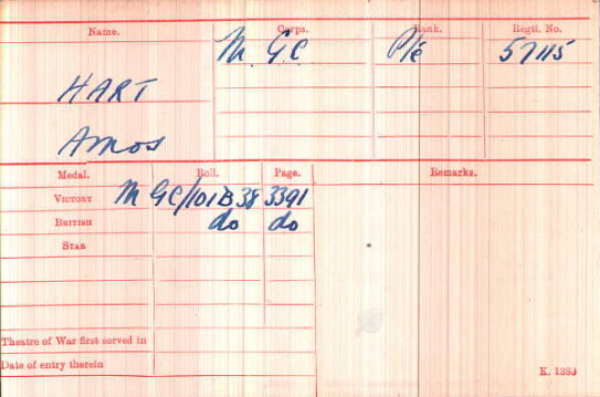 Name. Corps. Rank. Regtl. No.
M. G.C. Pte 57115
HART
Amos
Medal. Roll. Page. Remarks.
VICTORY M GC/101B38 3391
BRITISH do do
STAR
Theatre of War first served in
Date of entry therein
K. 1380